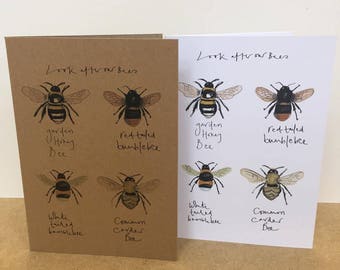 Look after our Bees
garden
Honey
Bee
red tailed
bumblebee
White
tailed
bumblebee
Common
Carder
Bee
Look after our Bees
garden
Honey
Bee
red tailed
bumblebee
White
tailed
bumblebee
Common
Carder
Bee